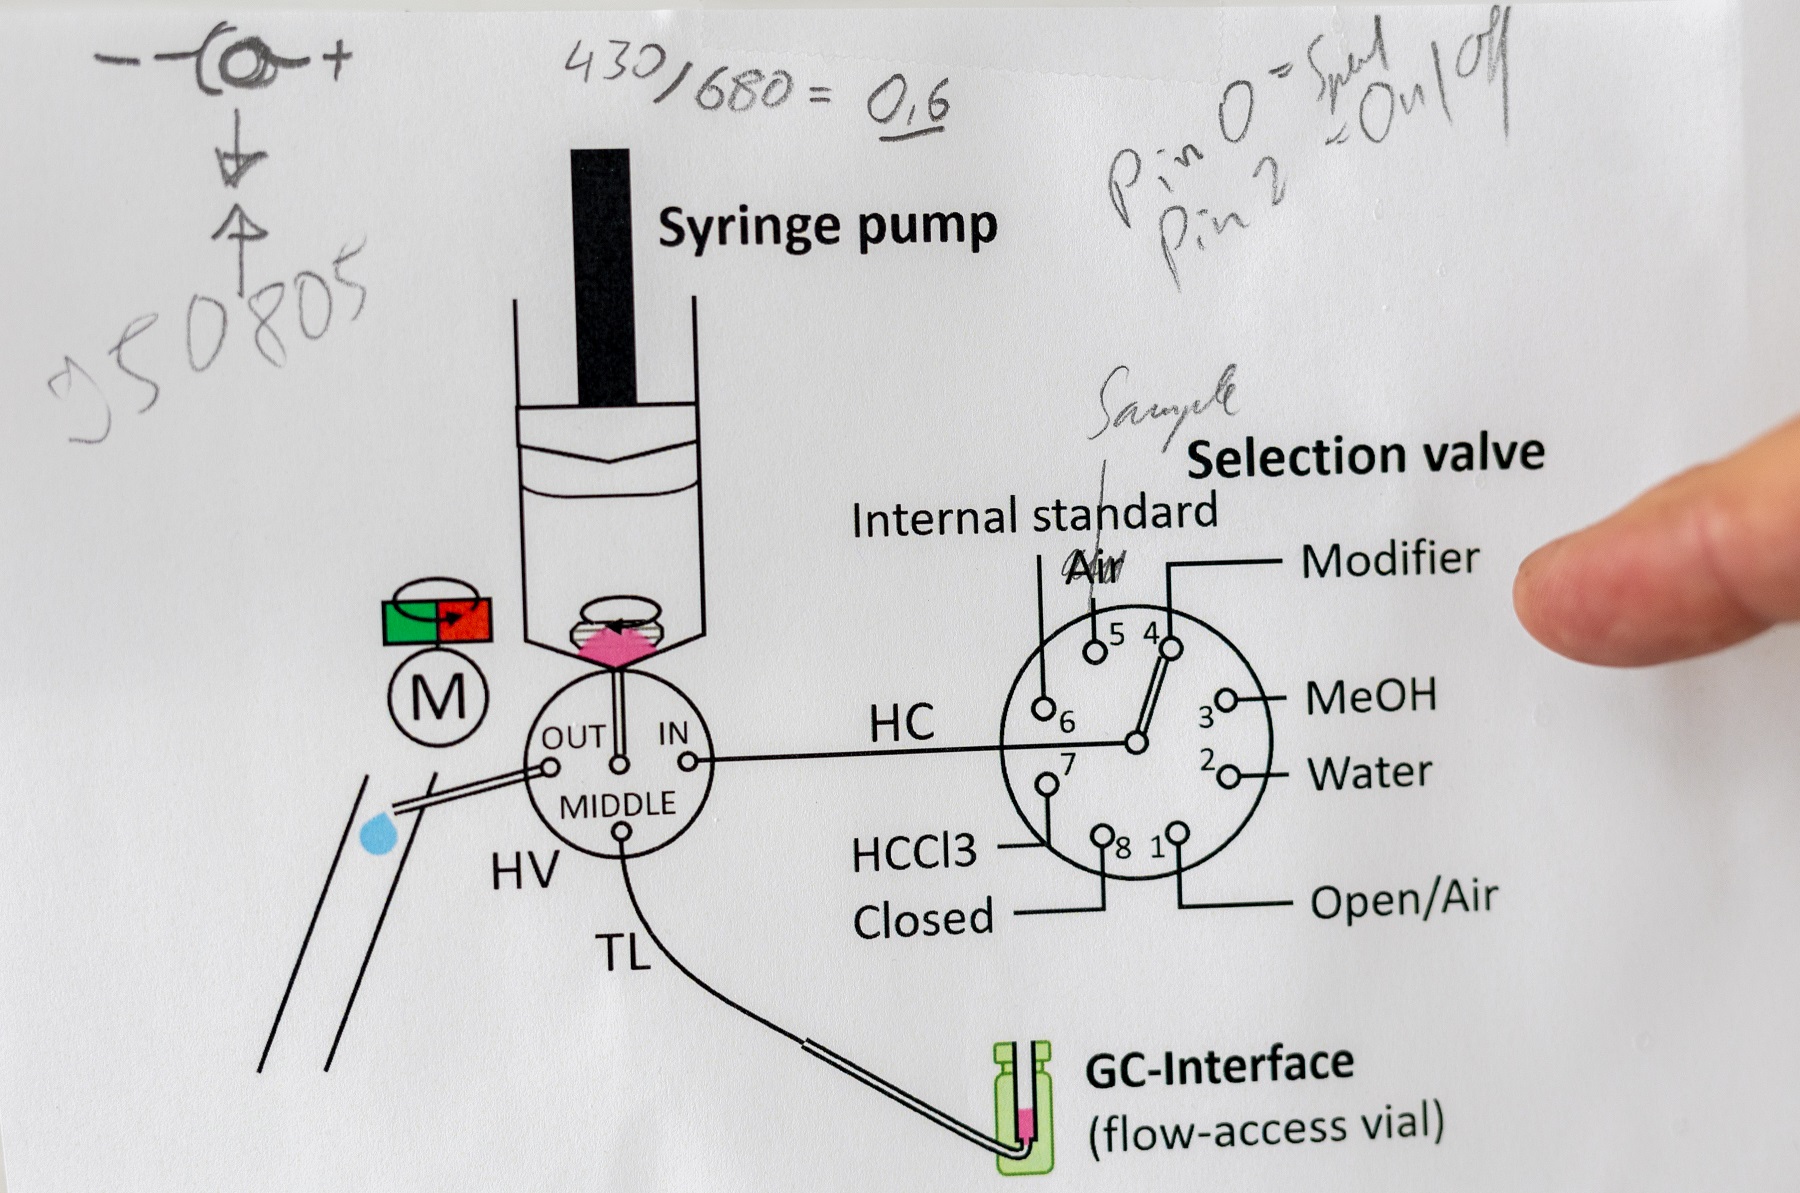 - +
430/680 = 0,6
Pin 0 = Speed
Pin 2 = On/Off
950805
Syringe pump
Sample
Selection valve
Internal standard
Air
Modifier
5 4
MeOH
3
6
M
OUT IN
HC
7
2
Water
MIDDLE
HV
HCCl3
8 1
Closed
Open/Air
TL
GC-Interface
(flow-access vial)